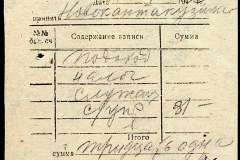 принять Новокантакузино
№№ бал. сч. Содержание записи Сумма
Подоход
налог
служащ
31-
Итого
сумма тридцать одна